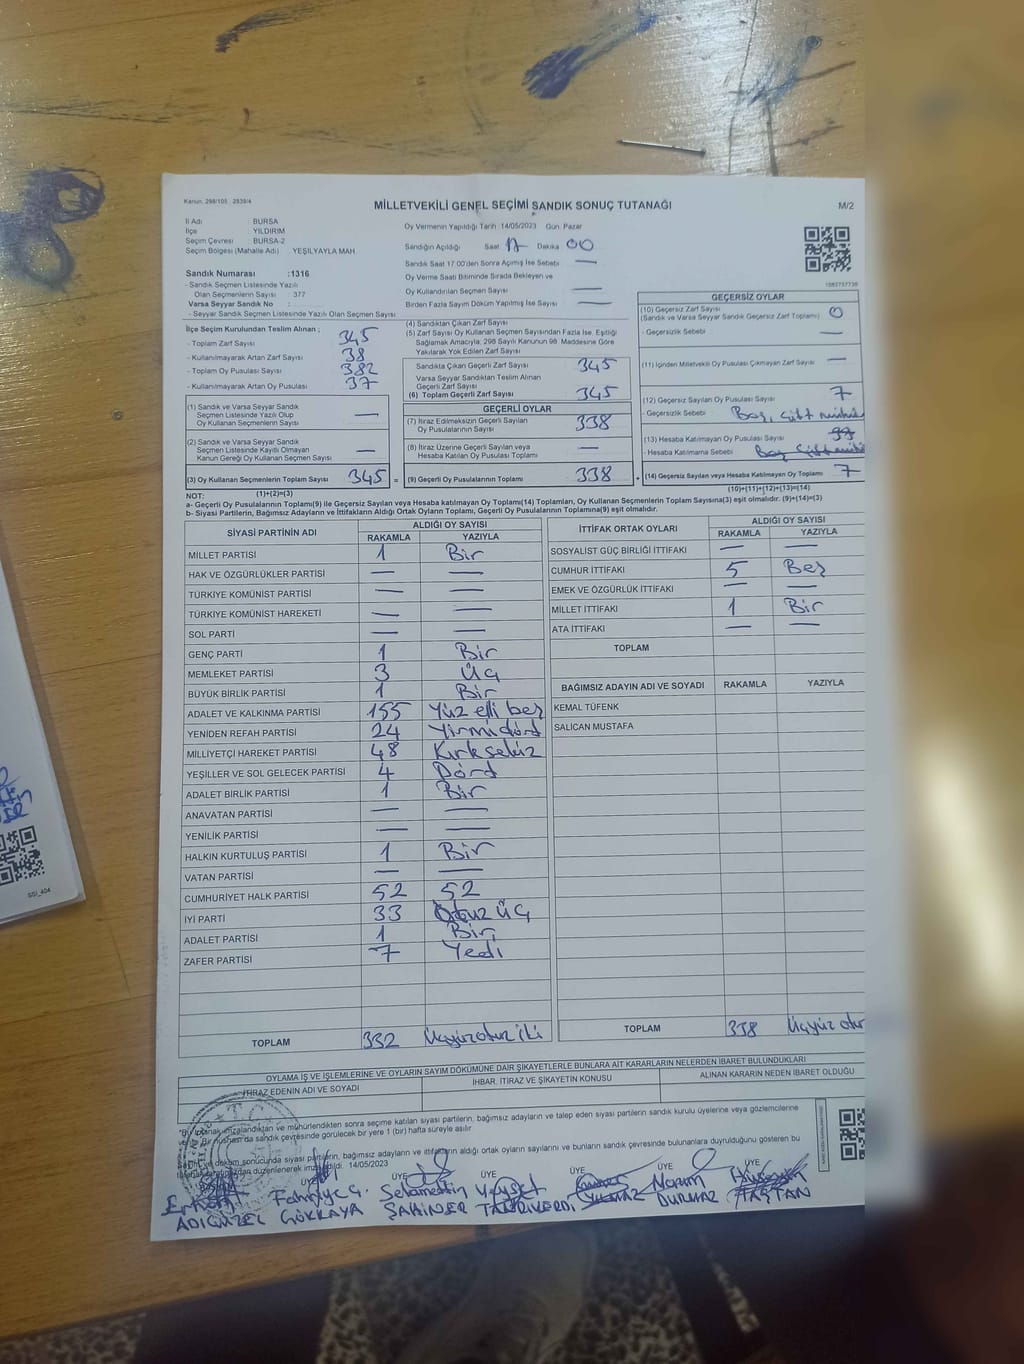 Kanun, 298/105 2839/4
MİLLETVEKİLİ GENEL SEÇİMİ SANDIK SONUÇ TUTANAĞI
M/2
İl Adı : BURSA
İlçe : YILDIRIM
Seçim Çevresi : BURSA-2
Seçim Bölgesi (Mahalle Adı) : YEŞİLYAYLA MAH
Sandık Numarası :1316
- Sandık Seçmen Listesinde Yazılı
Olan Seçmenlerin Sayısı : 377
Varsa Seyyar Sandık No :
- Seyyar Sandık Seçmen Listesinde Yazılı Olan Seçmen Sayısı
Oy Vermenin Yapıldığı Tarih 14/05/2023 Gün Pazar
Sandığın Açıldığı Saat 17 Dakika 00
Sandık Saat 17.00'den Sonra Açılmış İse Sebebi —
Oy Verme Saati Bitiminde Sırada Bekleyen ve
Oy Kullandırılan Seçmen Sayısı —
Birden Fazla Sayım Döküm Yapılmış İse Sayısı —
İlçe Seçim Kurulundan Teslim Alınan ;
- Toplam Zarf Sayısı 345
- Kullanılmayarak Artan Zarf Sayısı 38
- Toplam Oy Pusulası Sayısı 382
- Kullanılmayarak Artan Oy Pusulası 37
(1) Sandık ve Varsa Seyyar Sandık
Seçmen Listesinde Yazılı Olup
Oy Kullanan Seçmenlerin Sayısı —
(2) Sandık ve Varsa Seyyar Sandık
Seçmen Listesinde Kayıtlı Olmayan
Kanun Gereği Oy Kullanan Seçmen Sayısı —
(3) Oy Kullanan Seçmenlerin Toplam Sayısı 345 =
(1)+(2)=(3)
(4) Sandıktan Çıkan Zarf Sayısı
(5) Zarf Sayısı Oy Kullanan Seçmen Sayısından Fazla İse, Eşitliği
Sağlamak Amacıyla; 298 Sayılı Kanunun 98. Maddesine Göre
Yakılarak Yok Edilen Zarf Sayısı
Sandıkta Çıkan Geçerli Zarf Sayısı 345
Varsa Seyyar Sandıktan Teslim Alınan
Geçerli Zarf Sayısı
(6) Toplam Geçerli Zarf Sayısı 345
GEÇERLİ OYLAR
(7) İtiraz Edilmeksizin Geçerli Sayılan
Oy Pusulalarının Sayısı 338
(8) İtiraz Üzerine Geçerli Sayılan veya
Hesaba Katılan Oy Pusulası Toplamı —
(9) Geçerli Oy Pusulalarının Toplamı 338 +
1582737735
GEÇERSİZ OYLAR
(10) Geçersiz Zarf Sayısı
(Sandık ve Varsa Seyyar Sandık Geçersiz Zarf Toplamı) 0
- Geçersizlik Sebebi —
(11) İçinden Milletvekili Oy Pusulası Çıkmayan Zarf Sayısı —
(12) Geçersiz Sayılan Oy Pusulası Sayısı 7
- Geçersizlik Sebebi Boş, Çift
(13) Hesaba Katılmayan Oy Pusulası Sayısı
- Hesaba Katılmama Sebebi
(14) Geçersiz Sayılan veya Hesaba Katılmayan Oy Toplamı 7
(10)+(11)+(12)+(13)=(14)
NOT:
a- Geçerli Oy Pusulalarının Toplamı(9) ile Geçersiz Sayılan veya Hesaba katılmayan Oy Toplamı(14) Toplamları, Oy Kullanan Seçmenlerin Toplam Sayısına(3) eşit olmalıdır. (9)+(14)=(3)
b- Siyasi Partilerin, Bağımsız Adayların ve İttifakların Aldığı Ortak Oyların Toplamı, Geçerli Oy Pusulalarının Toplamına(9) eşit olmalıdır.
SİYASİ PARTİNİN ADI ALDIĞI OY SAYISI
RAKAMLA YAZIYLA
MİLLET PARTİSİ 1 Bir
HAK VE ÖZGÜRLÜKLER PARTİSİ — —
TÜRKİYE KOMÜNİST PARTİSİ — —
TÜRKİYE KOMÜNİST HAREKETİ — —
SOL PARTİ — —
GENÇ PARTİ 1 Bir
MEMLEKET PARTİSİ 3 Üç
BÜYÜK BİRLİK PARTİSİ 1 Bir
ADALET VE KALKINMA PARTİSİ 155 Yüz elli beş
YENİDEN REFAH PARTİSİ 24 Yirmi dörd
MİLLİYETÇİ HAREKET PARTİSİ 48 Kırk sekiz
YEŞİLLER VE SOL GELECEK PARTİSİ 4 Dörd
ADALET BİRLİK PARTİSİ 1 Bir
ANAVATAN PARTİSİ — —
YENİLİK PARTİSİ — —
HALKIN KURTULUŞ PARTİSİ 1 Bir
VATAN PARTİSİ — —
CUMHURİYET HALK PARTİSİ 52 52
İYİ PARTİ 33 Otuz Üç
ADALET PARTİSİ 1 Bir
ZAFER PARTİSİ 7 Yedi
TOPLAM 332 Üçyüz otuz iki
İTTİFAK ORTAK OYLARI ALDIĞI OY SAYISI
RAKAMLA YAZIYLA
SOSYALİST GÜÇ BİRLİĞİ İTTİFAKI — —
CUMHUR İTTİFAKI 5 Beş
EMEK VE ÖZGÜRLÜK İTTİFAKI — —
MİLLET İTTİFAKI 1 Bir
ATA İTTİFAKI — —
TOPLAM
BAĞIMSIZ ADAYIN ADI VE SOYADI RAKAMLA YAZIYLA
KEMAL TÜFENK
SALİCAN MUSTAFA
TOPLAM 338 Üçyüz otuz
OYLAMA İŞ VE İŞLEMLERİNE VE OYLARIN SAYIM DÖKÜMÜNE DAİR ŞİKAYETLERLE BUNLARA AİT KARARLARIN NELERDEN İBARET BULUNDUKLARI
İTİRAZ EDENİN ADI VE SOYADI İHBAR, İTİRAZ VE ŞİKAYETİN KONUSU ALINAN KARARIN NEDEN İBARET OLDUĞU
imzalandıktan ve mühürlendikten sonra seçime katılan siyasi partilerin, bağımsız adayların ve talep eden siyasi partilerin sandık kurulu üyelerine veya gözlemcilerine
Bir nüshası da sandık çevresinde görülecek bir yere 1 (bir) hafta süreyle asılır
döküm sonucunda siyasi partilerin, bağımsız adayların ve ittifakların aldığı ortak oyların sayılarını ve bunların sandık çevresinde bulunanlara duyrulduğunu gösteren bu
düzenlenerek imza edildi. 14/05/2023
ÜYE ÜYE ÜYE ÜYE ÜYE ÜYE
Fahriye G. Selamettin
ADIGÜZEL GÖKKAYA ŞAHİNER TANRIVERDİ YILMAZ DURMAZ TAŞTAN
SSİ_404